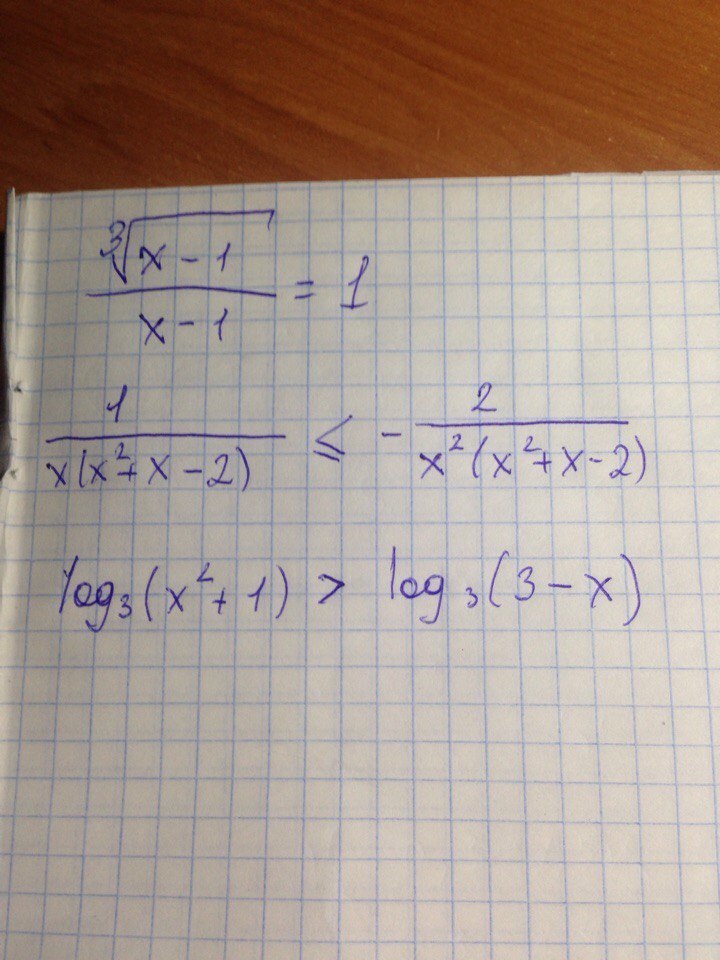 ∛(x - 1) / (x - 1) = 1
1 / (x(x² + x - 2)) ≤ - 2 / (x²(x² + x - 2))
log₃(x² + 1) > log₃(3 - x)